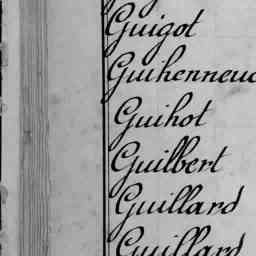 Guigot
Guihenneuc
Guihot
Guilbert
Guillard
Guillard